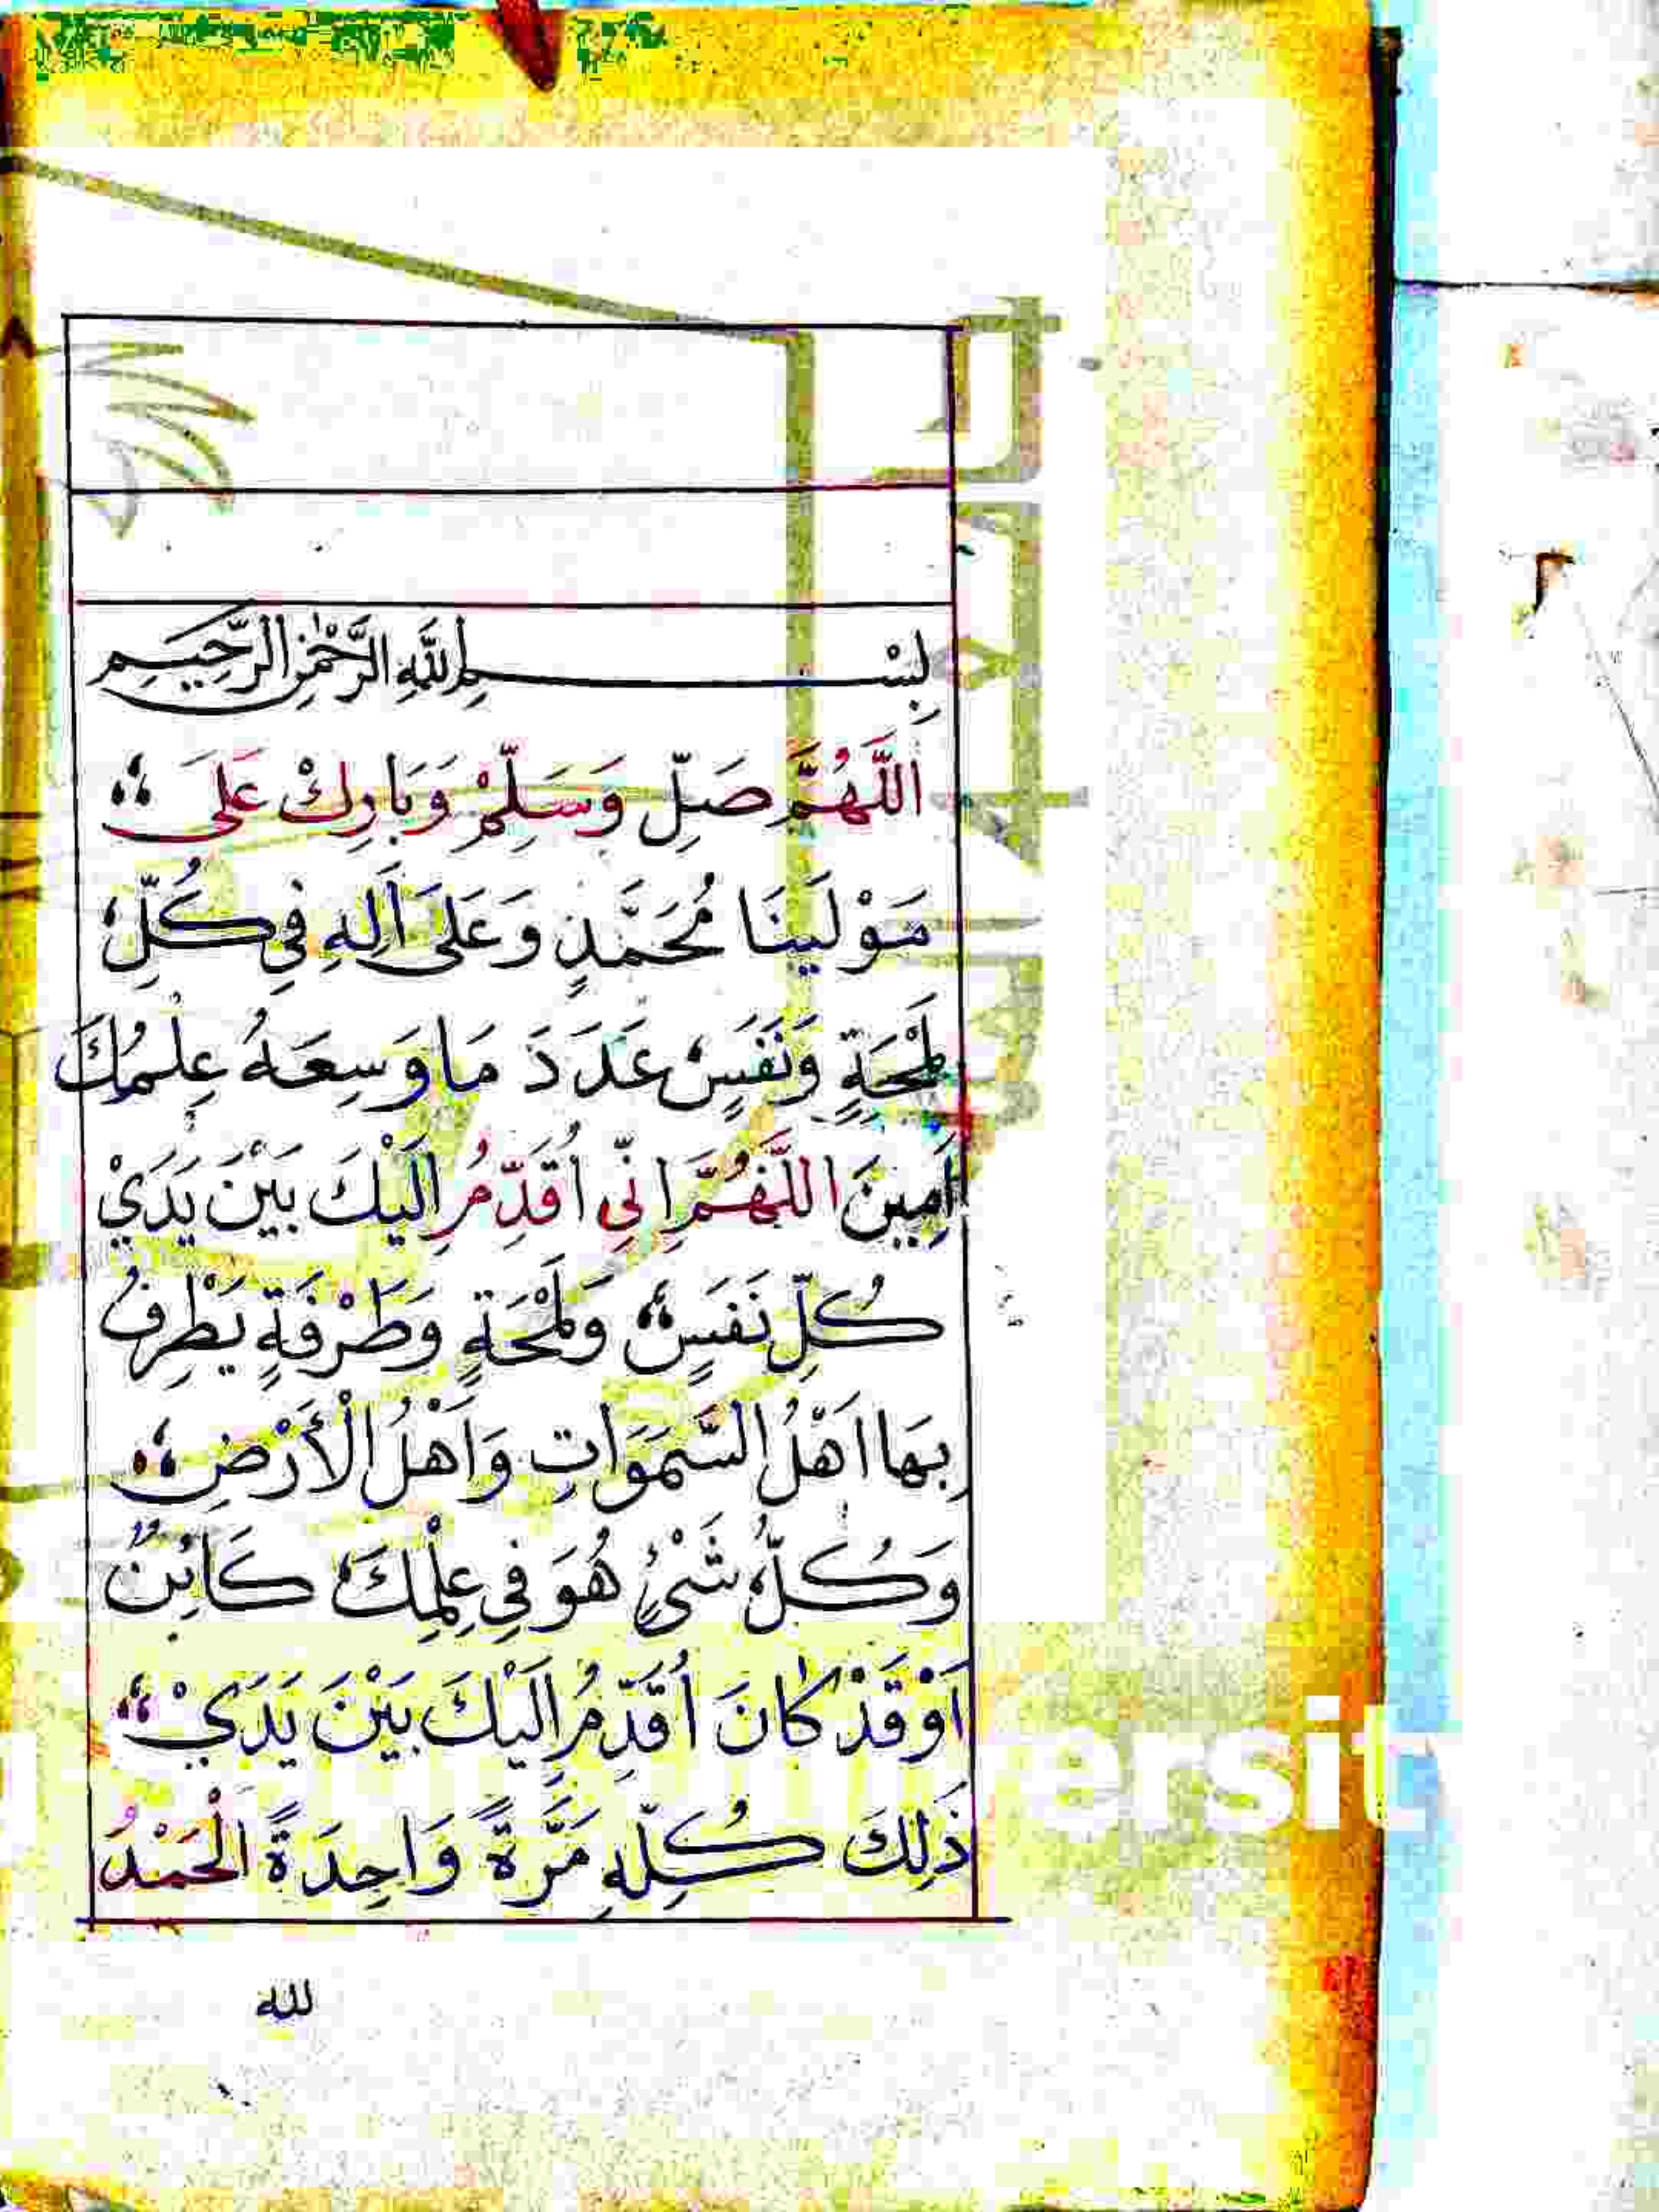 بِسْمِ اللَّهِ الرَّحْمٰنِ الرَّحِيمِ
اَللَّهُمَّ صَلِّ وَسَلِّمْ وَبَارِكْ عَلَى
مَوْلَينَا مُحَمَّدٍ وَعَلَى اَلِهِ فِي كُلِّ
لَمْحَةٍ وَنَفَسٍ عَدَدَ مَا وَسِعَهُ عِلْمُكَ
اَمِينَ اللَّهُمَّ اِنِّي اُقَدِّمُ اِلَيْكَ بَيْنَ يَدَيْ
كُلِّ نَفَسٍ وَلَمْحَةٍ وَطَرْفَةٍ يَطْرِفُ
بِهَا اَهْلُ السَّمَوَاتِ وَاَهْلُ الْأَرْضِ
وَكُلُّ شَيْءٍ هُوَ فِي عِلْمِكَ كَائِنٌ
اَوْ قَدْ كَانَ اُقَدِّمُ اِلَيْكَ بَيْنَ يَدَيْ
ذَلِكَ كُلِّهِ مَرَّةً وَاحِدَةً الْحَمْدُ
لله
ersit